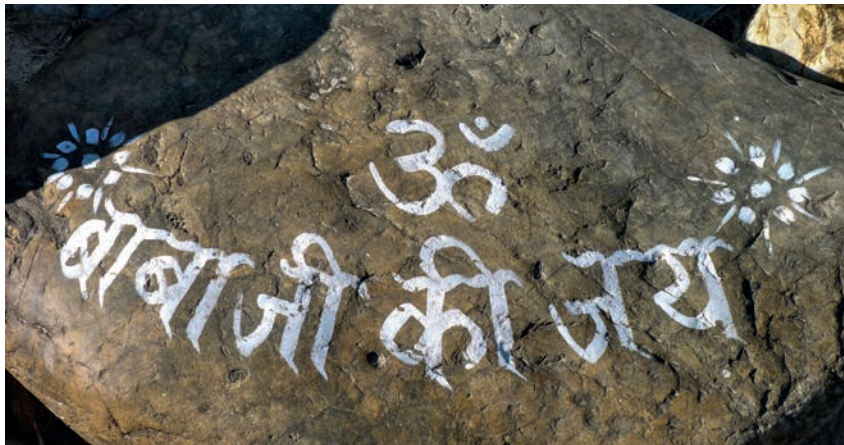 ॐ
बाबाजी की जय